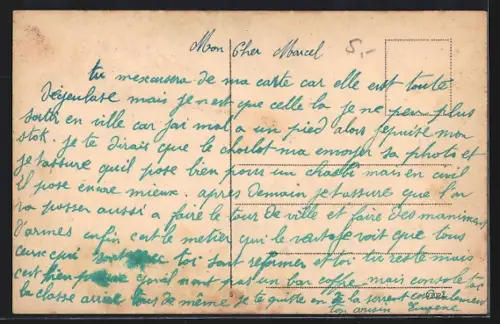 Mon Cher Marcel 5,-
tu mexcusera de ma carte car elle est toute
dégeulase mais je nest que celle la je ne peu plus
sortir en ville car jai mal a un pied alors jepuise mon
stok. je te dirais que le charlot ma envoyer sa photo et
je tassure quil pose bien pour un chasbi mais en civil
il pose encore mieux. apres demain je tassure que l'on
va passer aussi a faire le tour de ville et faire des maniment
d'armes enfin cest le metier qui le veut on voit que tous
ceux qui sont avec toi sont reformer et toi tu reste mais
c'est bien quil nont pas un bar coffe mais console toi
la classe arrive tous de même je te quitte en te la serrant cordialement
ton cousin Eugene